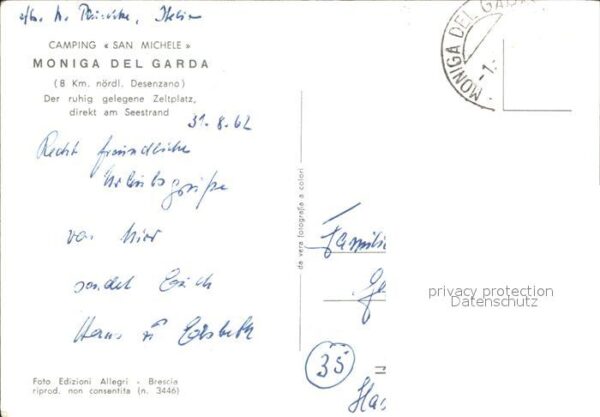 Italien
CAMPING « SAN MICHELE »
MONIGA DEL GARDA
(8 Km. nördl. Desenzano)
Der ruhig gelegene Zeltplatz,
direkt am Seestrand
31.8.62
Recht freundliche
Urlaubsgrüße
von hier
sendet Euch
Hans u
Foto Edizioni Allegri - Brescia
riprod. non consentita (n. 3446)
da vera fotografia a colori
MONIGA DEL GARDA
Familie
35
privacy protection
Datenschutz